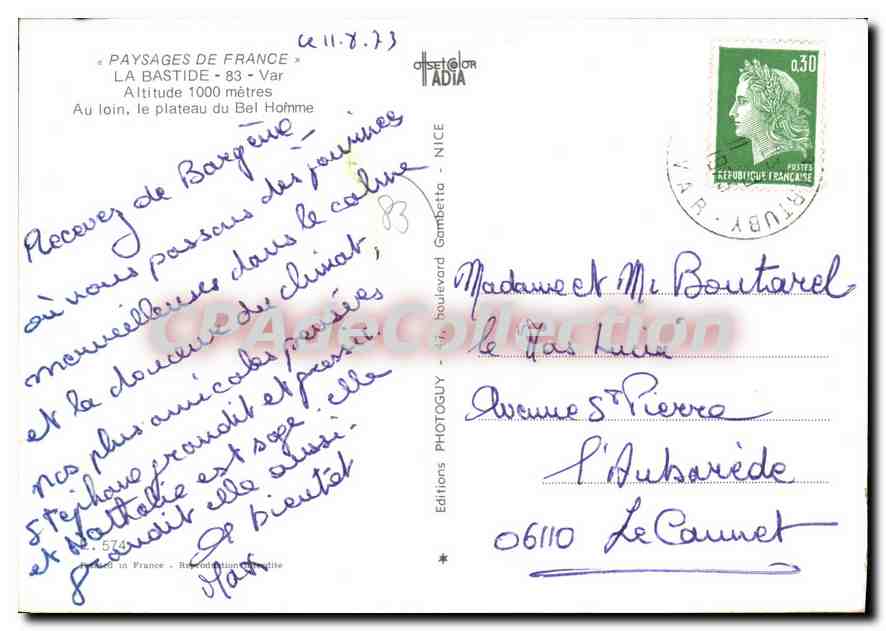 ce 11.8.73
« PAYSAGES DE FRANCE »
LA BASTIDE - 83 - Var
Altitude 1000 mètres
Au loin, le plateau du Bel Homme
Recevez de Bargème
où nous passons des journées
merveilleuses dans le calme
et la douceur du climat,
nos plus amicales pensées
Stéphane grandit et grossit.
et Nathalie est sage, elle
grandit elle aussi.
A bientôt
Max
574
Printed in France - Reproduction interdite
83
OFFSET COLOR
ADIA
Editions PHOTOGUY - boulevard Gambetta - NICE
*
0,30
POSTES
REPUBLIQUE FRANÇAISE
VAR
Madame et Mr Boutarel
le Mas
Avenue St Pierre
l'Aubarède
06110 Le Cannet
CPAdeCollection